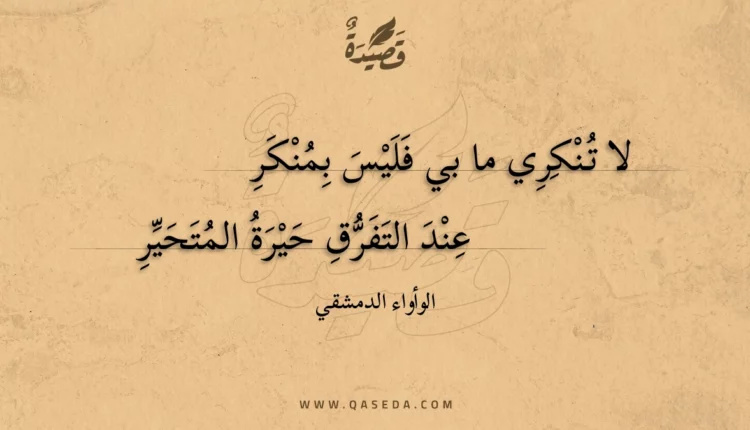 قَصِيْدَةٌ
لا تُنْكِرِي ما بي فَلَيْسَ بِمُنْكَرِ
عِنْدَ التَفَرُّقِ حَيْرَةُ المُتَحَيِّرِ
الوأواء الدمشقي
WWW.QASEDA.COM